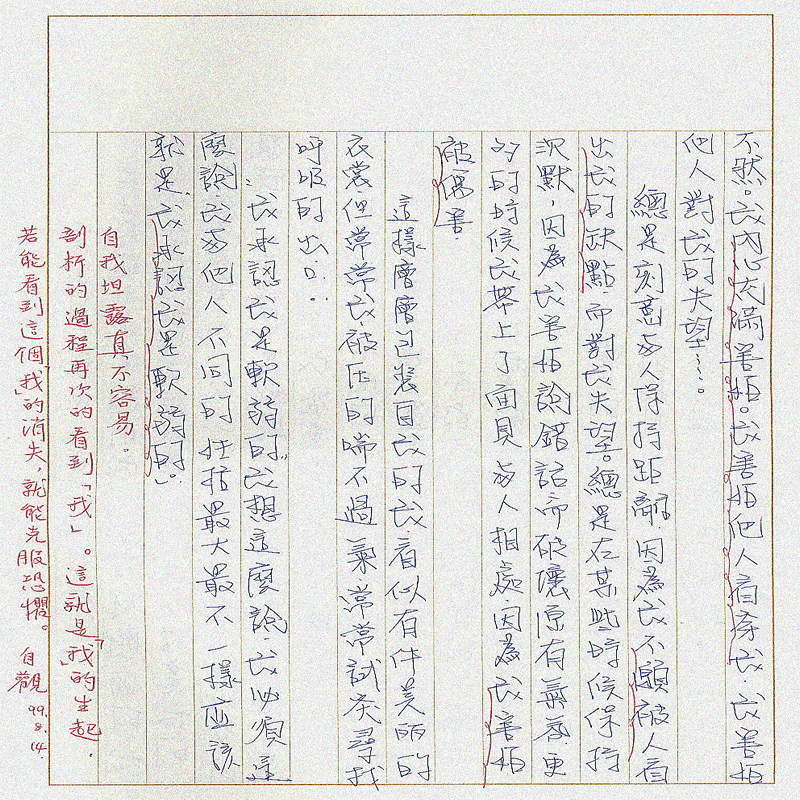 不然。我內心充滿害怕。我害怕他人看夸我.我害怕
他人對我的失望……。
總是刻意与人保持距離,因為我不願被人看
出我的缺點.而對我失望。總是在某些時候保持
沉默,因為我害怕說錯話而破壞原有氣氛.更
多的時候我帶上了面具与人相處.因為我害怕
被傷害.
這樣層層包裝自我的我.看似有件美丽的
衣裳.但常常我被压的喘不過氣.常常試著尋找
呼吸的出口..
"我承認我是軟弱的.."我想這麼說.我必須這
麼說.我与他人不同的性格最大最不一樣应該
就是.我承認我是軟弱的。
自我坦露真不容易。
剖析的過程再次的看到「我」。這就是「我」的生起.
若能看到這個「我」的消失,就能克服恐懼。 自觀 99.8.14